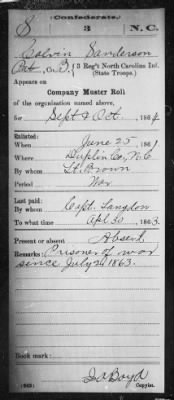 (Confederate.)
S 3 N.C.
Calvin Sanderson
Pvt, Co. B, 3 Reg't North Carolina Inf.
(State Troops.)
Appears on
Company Muster Roll
of the organization named above,
for Sept & Oct, 1864
Enlisted:
When June 25, 1861
Where Duplin Co, N.C.
By whom Lt. Brown
Period War
Last paid:
By whom Capt. Langdon
To what time Apl 30, 1863
Present or absent Absent
Remarks: Prisoner of war
since July 2, 1863.
Book mark:
(642) J.A. Boyd
Copyist.